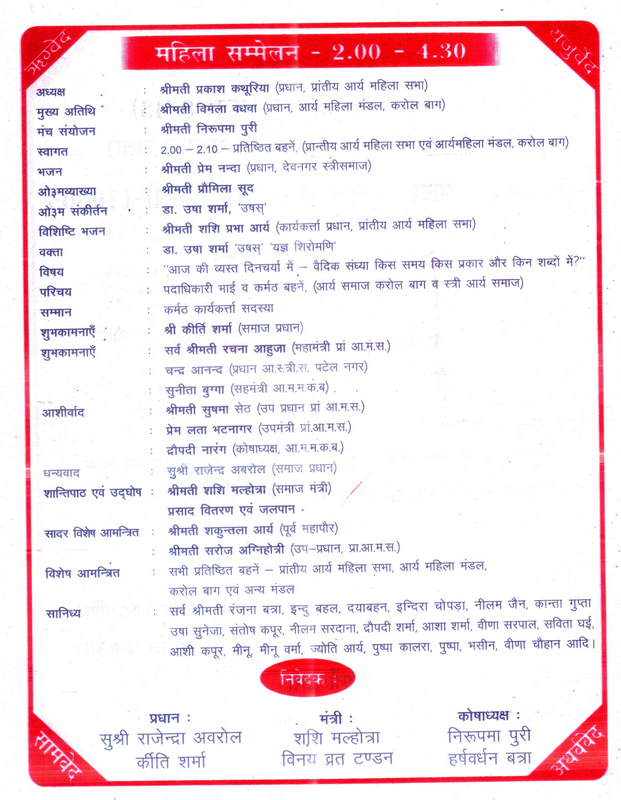 ऋग्वेद
यजुर्वेद
महिला सम्मेलन - 2.00 - 4.30
अध्यक्ष : श्रीमती प्रकाश कथूरिया (प्रधान, प्रांतीय आर्य महिला सभा)
मुख्य अतिथि : श्रीमती विमला वधवा (प्रधान, आर्य महिला मंडल, करोल बाग)
मंच संयोजन : श्रीमती निरूपमा पुरी
स्वागत : 2.00 – 2.10 – प्रतिष्ठित बहनें, (प्रान्तीय आर्य महिला सभा एवं आर्यमहिला मंडल, करोल बाग)
भजन : श्रीमती प्रेम नन्दा (प्रधान, देवनगर स्त्रीसमाज)
ओ३मव्याख्या : श्रीमती प्रौमिला सूद
ओ३म संकीर्तन : डा. उषा शर्मा, 'उषस्'
विशिष्टि भजन : श्रीमती शशि प्रभा आर्य (कार्यकर्त्ता प्रधान, प्रांतीय आर्य महिला सभा)
वक्ता : डा. उषा शर्मा 'उषस्' 'यज्ञ शिरोमणि'
विषय : "आज की व्यस्त दिनचर्या में – वैदिक संध्या किस समय किस प्रकार और किन शब्दों में?"
परिचय : पदाधिकारी भाई व कर्मठ बहनें, (आर्य समाज करोल बाग व स्त्री आर्य समाज)
सम्मान : कर्मठ कार्यकर्त्ता सदस्या
शुभकामनाएँ : श्री कीर्ति शर्मा (समाज प्रधान)
शुभकामनाएँ : सर्व श्रीमती रचना आहुजा (महामंत्री प्रां आ.म.स.)
: चन्द्र आनन्द (प्रधान आ.स्त्री.स. पटेल नगर)
: सुनीता बुग्गा (सहमंत्री आ.म.म.क.ब)
आशीर्वाद : श्रीमती सुषमा सेठ (उप प्रधान प्रां आ.म.स.)
: प्रेम लता भटनागर (उपमंत्री प्रां.आ.म.स.)
: द्रौपदी नारंग (कोषाध्यक्ष, आ.म.म.क.ब.)
धन्यवाद : सुश्री राजेन्द्र अबरोल (समाज प्रधान)
शान्तिपाठ एवं उद्घोष : श्रीमती शशि मल्होत्रा (समाज मंत्री)
प्रसाद वितरण एवं जलपान
सादर विशेष आमन्त्रित : श्रीमती शकुन्तला आर्य (पूर्व महापौर)
: श्रीमती सरोज अग्निहोत्री (उप–प्रधान, प्रा.आ.म.स.)
विशेष आमन्त्रित : सभी प्रतिष्ठित बहनें – प्रांतीय आर्य महिला सभा, आर्य महिला मंडल,
करोल बाग एवं अन्य मंडल
सानिध्य : सर्व श्रीमती रंजना बत्रा, इन्दु बहल, दयाबहन, इन्दिरा चोपड़ा, नीलम जैन, कान्ता गुप्ता
उषा सुनेजा, संतोष कपूर, नीलम सरदाना, द्रौपदी शर्मा, आशा शर्मा, वीणा सरपाल, सविता घई,
आशी कपूर, मीनू, मीनू वर्मा, ज्योति आर्य, पुष्पा कालरा, पुष्पा, भसीन, वीणा चौहान आदि।
निवेदक :
प्रधान : मंत्री : कोषाध्यक्ष :
सुश्री राजेन्द्रा अवरोल शशि मल्होत्रा निरूपमा पुरी
कीति शर्मा विनय व्रत टण्डन हर्षवर्धन बत्रा
सामवेद
अथर्ववेद